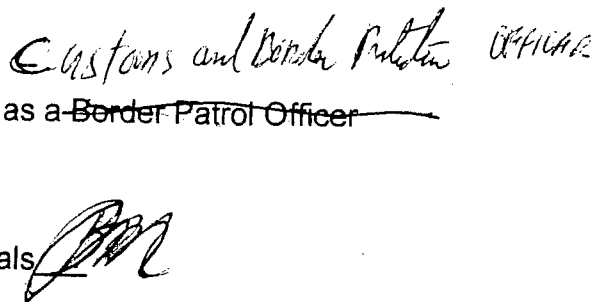 Customs and Border Protection OFFICER
as a Border Patrol Officer
als